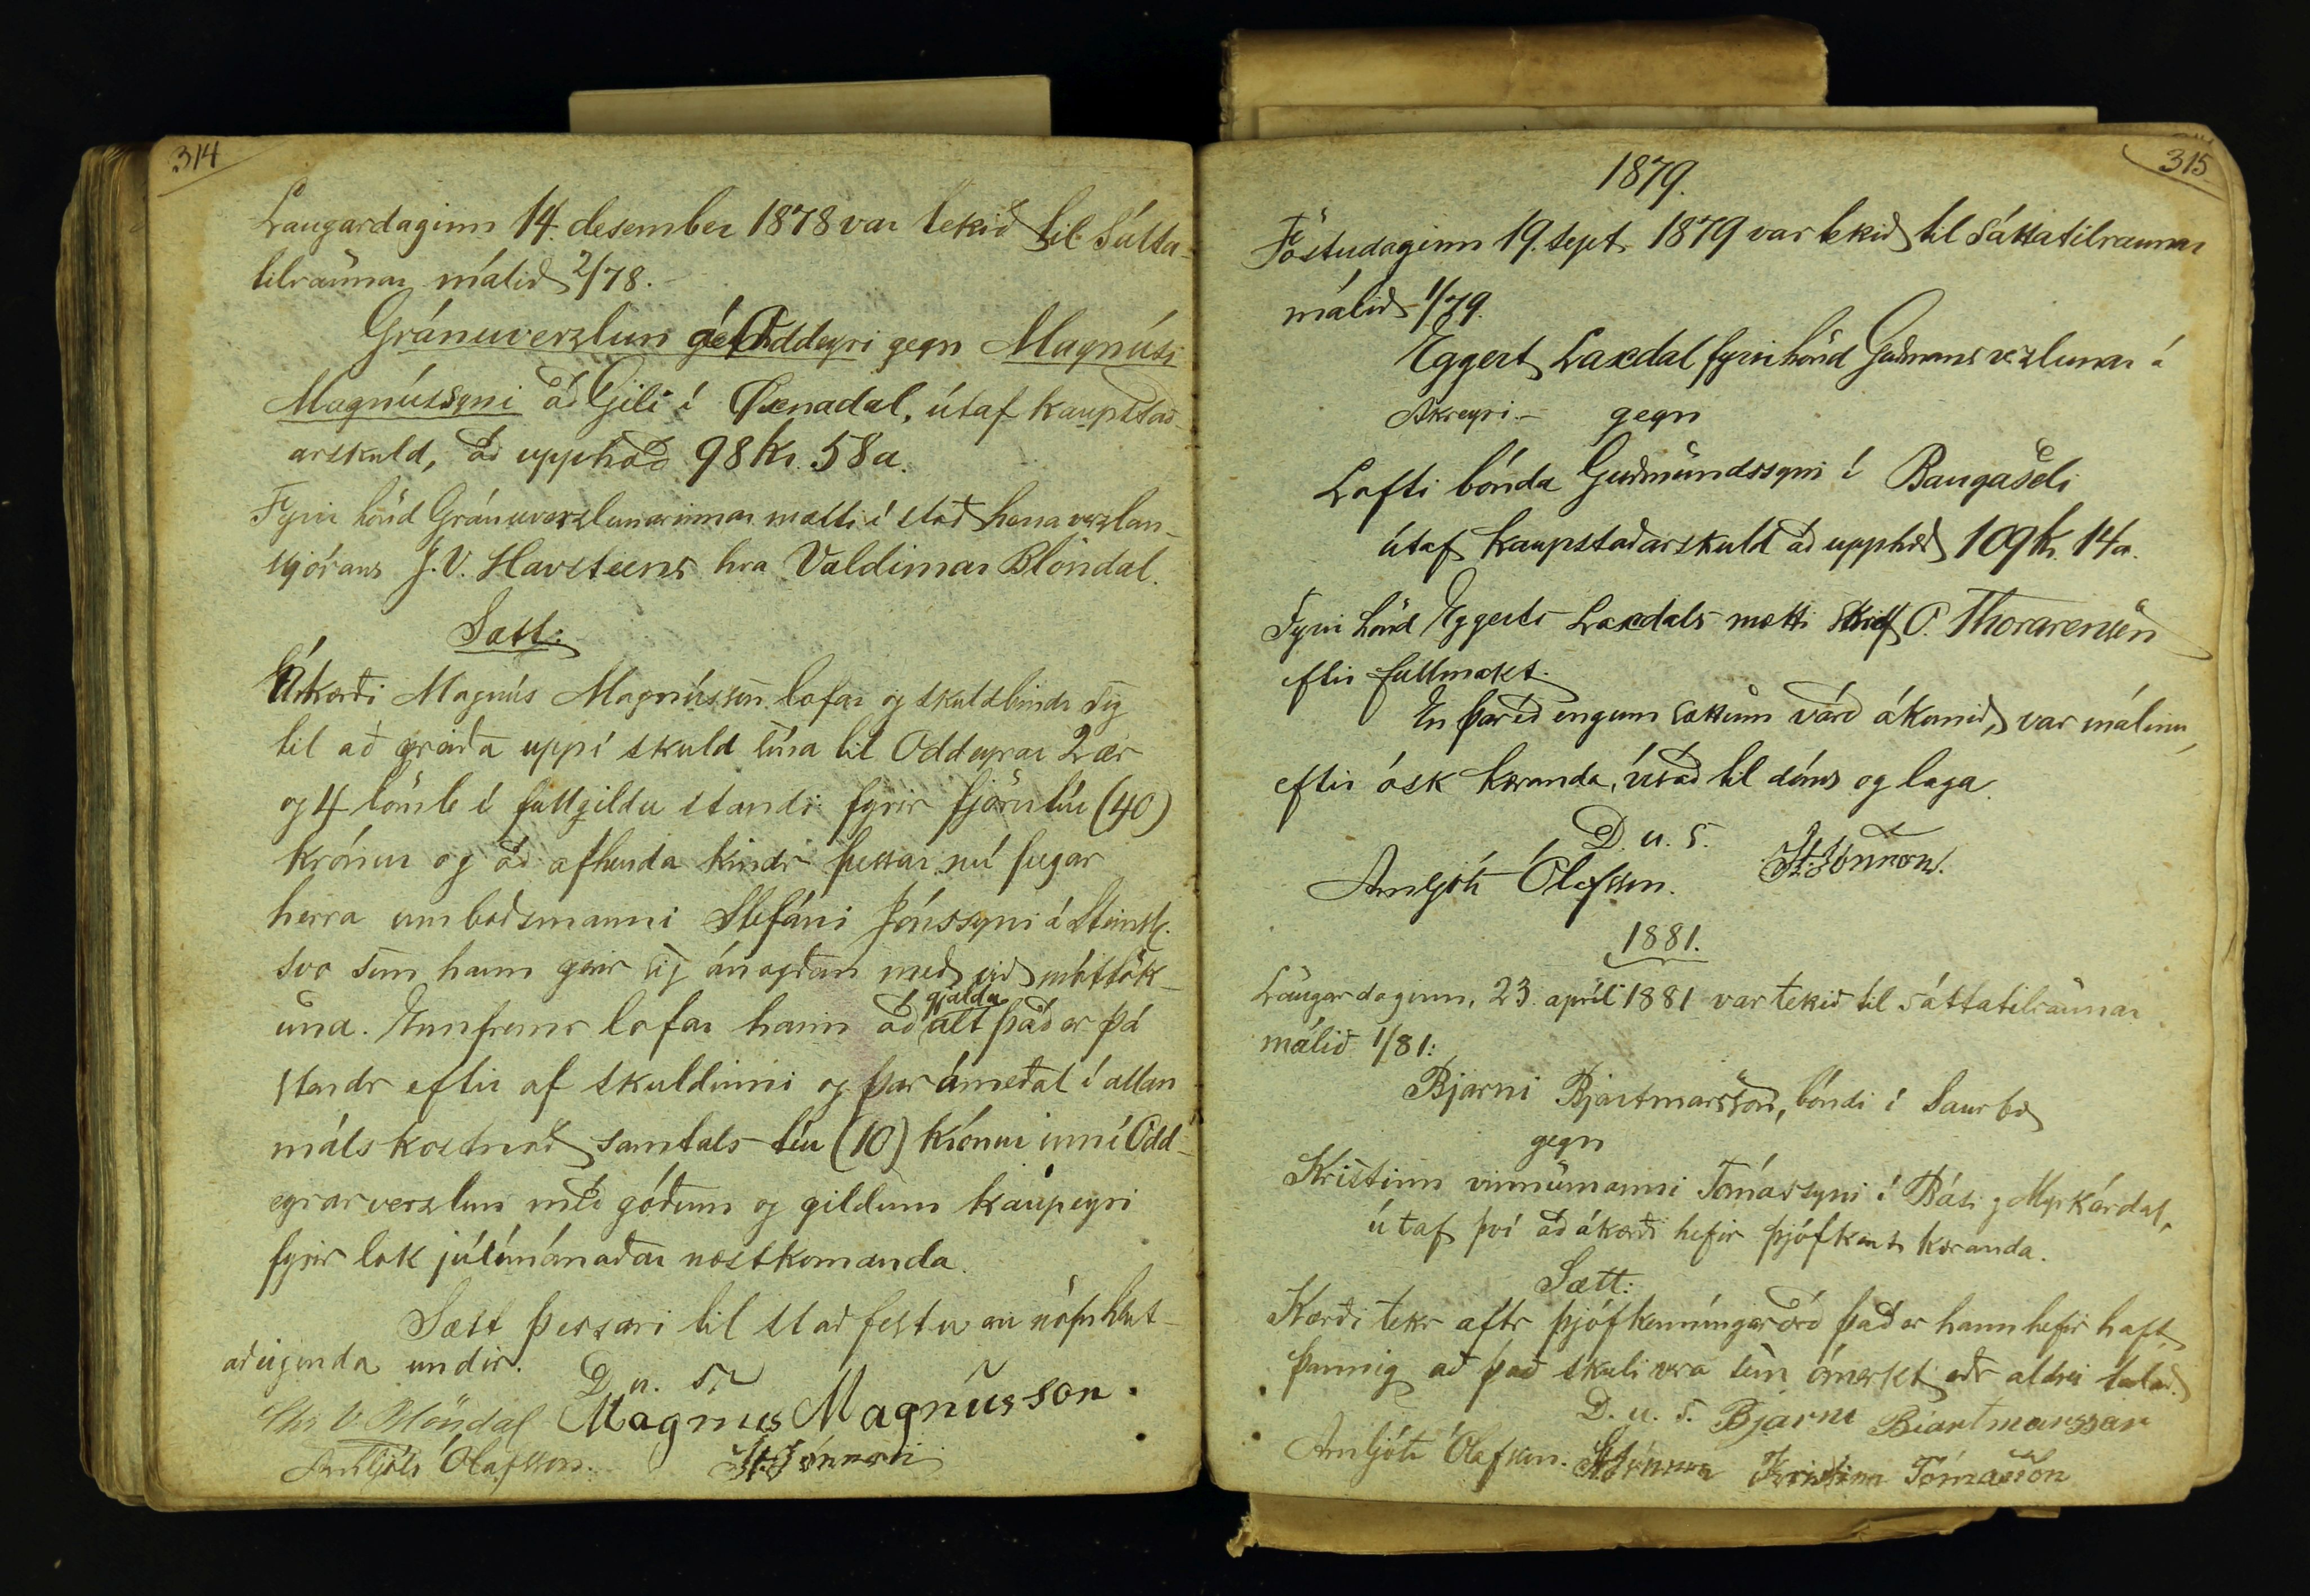 314
Laugardaginn 14. desember 1878 var tekið til sátta-
tilraunar málið 2/78.
Gránuverzlun á Oddeyri gegn Magnúsi
Magnússyni að Gili í Öxnadal, útaf kaupstað-
arskuld, að upphæð 98 kr. 58 a.
Fyrir hönd Gránuverzlunarinnar mætti í stað herra verzlan-
stjórans J. V. Havsteens hra Valdimar Blöndal.
Sætt:
Ákærði Magnús Magnússon lofar og skuldbindr sig
til að greiða uppí skuld sína til Oddeyrar 2 ær
og 4 lömb í fullgildu standi fyrir fjörutíu (40)
krónur og að afhenda kindr þessar nú þegar
herra umboðsmanni Stefáni Jónssyni á Steinst.
svo sem hann gerir sig ánægðan með við móttök-
una. Ennfremr lofar hann að gjalda alt það er þá
stendr eftir af skuldinni og þar ámeðal í allan
málskostnað samtals tíu (10) krónur inní Odd-
eyrarverzlun með góðum og gildum kaupeyri
fyrir lok júlímánaðar næstkomanda.
Sætt þessari til staðfestu eru nöfn hlut-
aðeigenda undir.
D. u. s.
Chr V. Blöndal Magnus Magnússon
Arnljótr Ólafsson. St. Jónsson
315
1879.
Föstudaginn 19. sept. 1879 var tekið til sáttatilraunar
málið 1/79.
Eggert Laxdal fyrir hönd Guðmanns verzlunar á
Akreyri – gegn
Lofti bónda Guðmundssyni í Baugaseli
útaf kaupstaðarskuld að upphæð 109 kr. 14 a.
Fyrir hönd Eggerts Laxdals mætti O. Thorarensen
eftir fullmakt.
En þareð engum sættum varð ákomið, var málinu,
eftir ósk kæranda, vísað til dóms og laga.
D. u. s.
Arnljótr Ólafsson. St. Jónsson.
1881.
Laugardaginn, 23. apríl 1881 var tekið til sáttatilraunar
málið 1/81:
Bjarni Bjartmarsson, bóndi í Saurbæ
gegn
Kristinn vinnumanni Tómassyni í Bási í Myrkárdal,
útaf því að ákærði hefir þjófkent kæranda.
Sætt:
Kærði tekr aftr þjófkenningarorð það er hann hefir haft
þannig að það skuli vera sem ómerkt eðr aldrei talað.
D. u. s. Bjarni Biartmarssar
Arnljótr Ólafsson. St. Jónsson Kristinn Tómasson